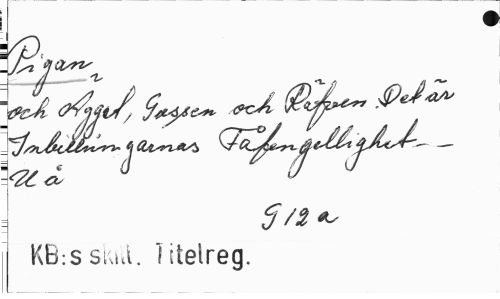 Pigan
och Ägget, Gåssen och Räfven. Det är
Inbillningarnas Fåfengellighet--
U å
G 12 a
KB:s skill. Titelreg.